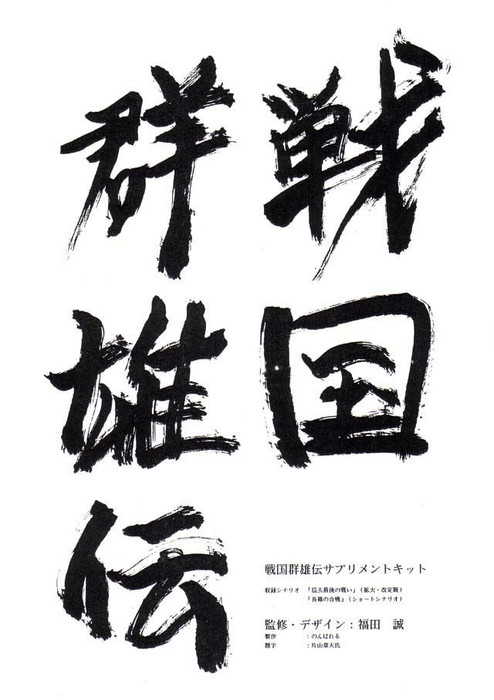 戦国
群雄伝
戦国群雄伝サプリメントキット
収録シナリオ 「信玄最後の戦い」(拡大・改定版)
「長篠の合戦」(ショートシナリオ)
監修・デザイン:福田 誠
製作 :のんばれる
題字 :片山章夫氏